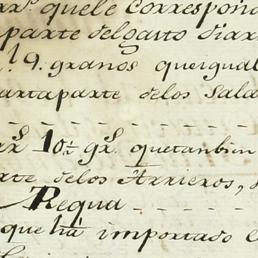 quele Correspon
parte delgasto diar
9. granos queigual
artaparte delos Sala
10½ gr.s quetanbien
rte delos Arrieros,
Requa
que há importado